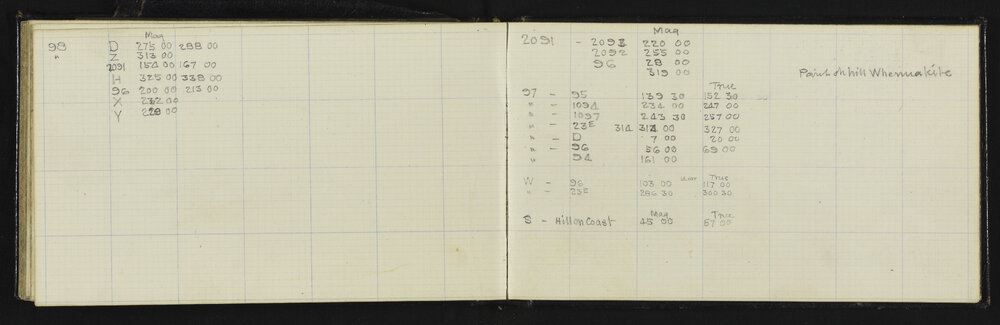 Mag
98 D 275 00 288 00
" Z 313 00
2091 154 00 167 00
H 325 00 338 00
96 200 00 213 00
X 232 00
Y 228 00
Mag
2091 - 2093 220 00
2092 255 00
96 28 00
319 00
Paint on hill Whenuakite
True
97 - 95 139 30 152 30
" - 1094 234 00 247 00
" - 1097 243 30 257 00
" - 23E 314 314 00 327 00
" - D 7 00 20 00
" - 96 56 00 69 00
" 94 161 00
True
W - 96 103 00 117 00
" - 23E 286 30 300 30
Mag True
S - Hill on Coast 45 00 57 00